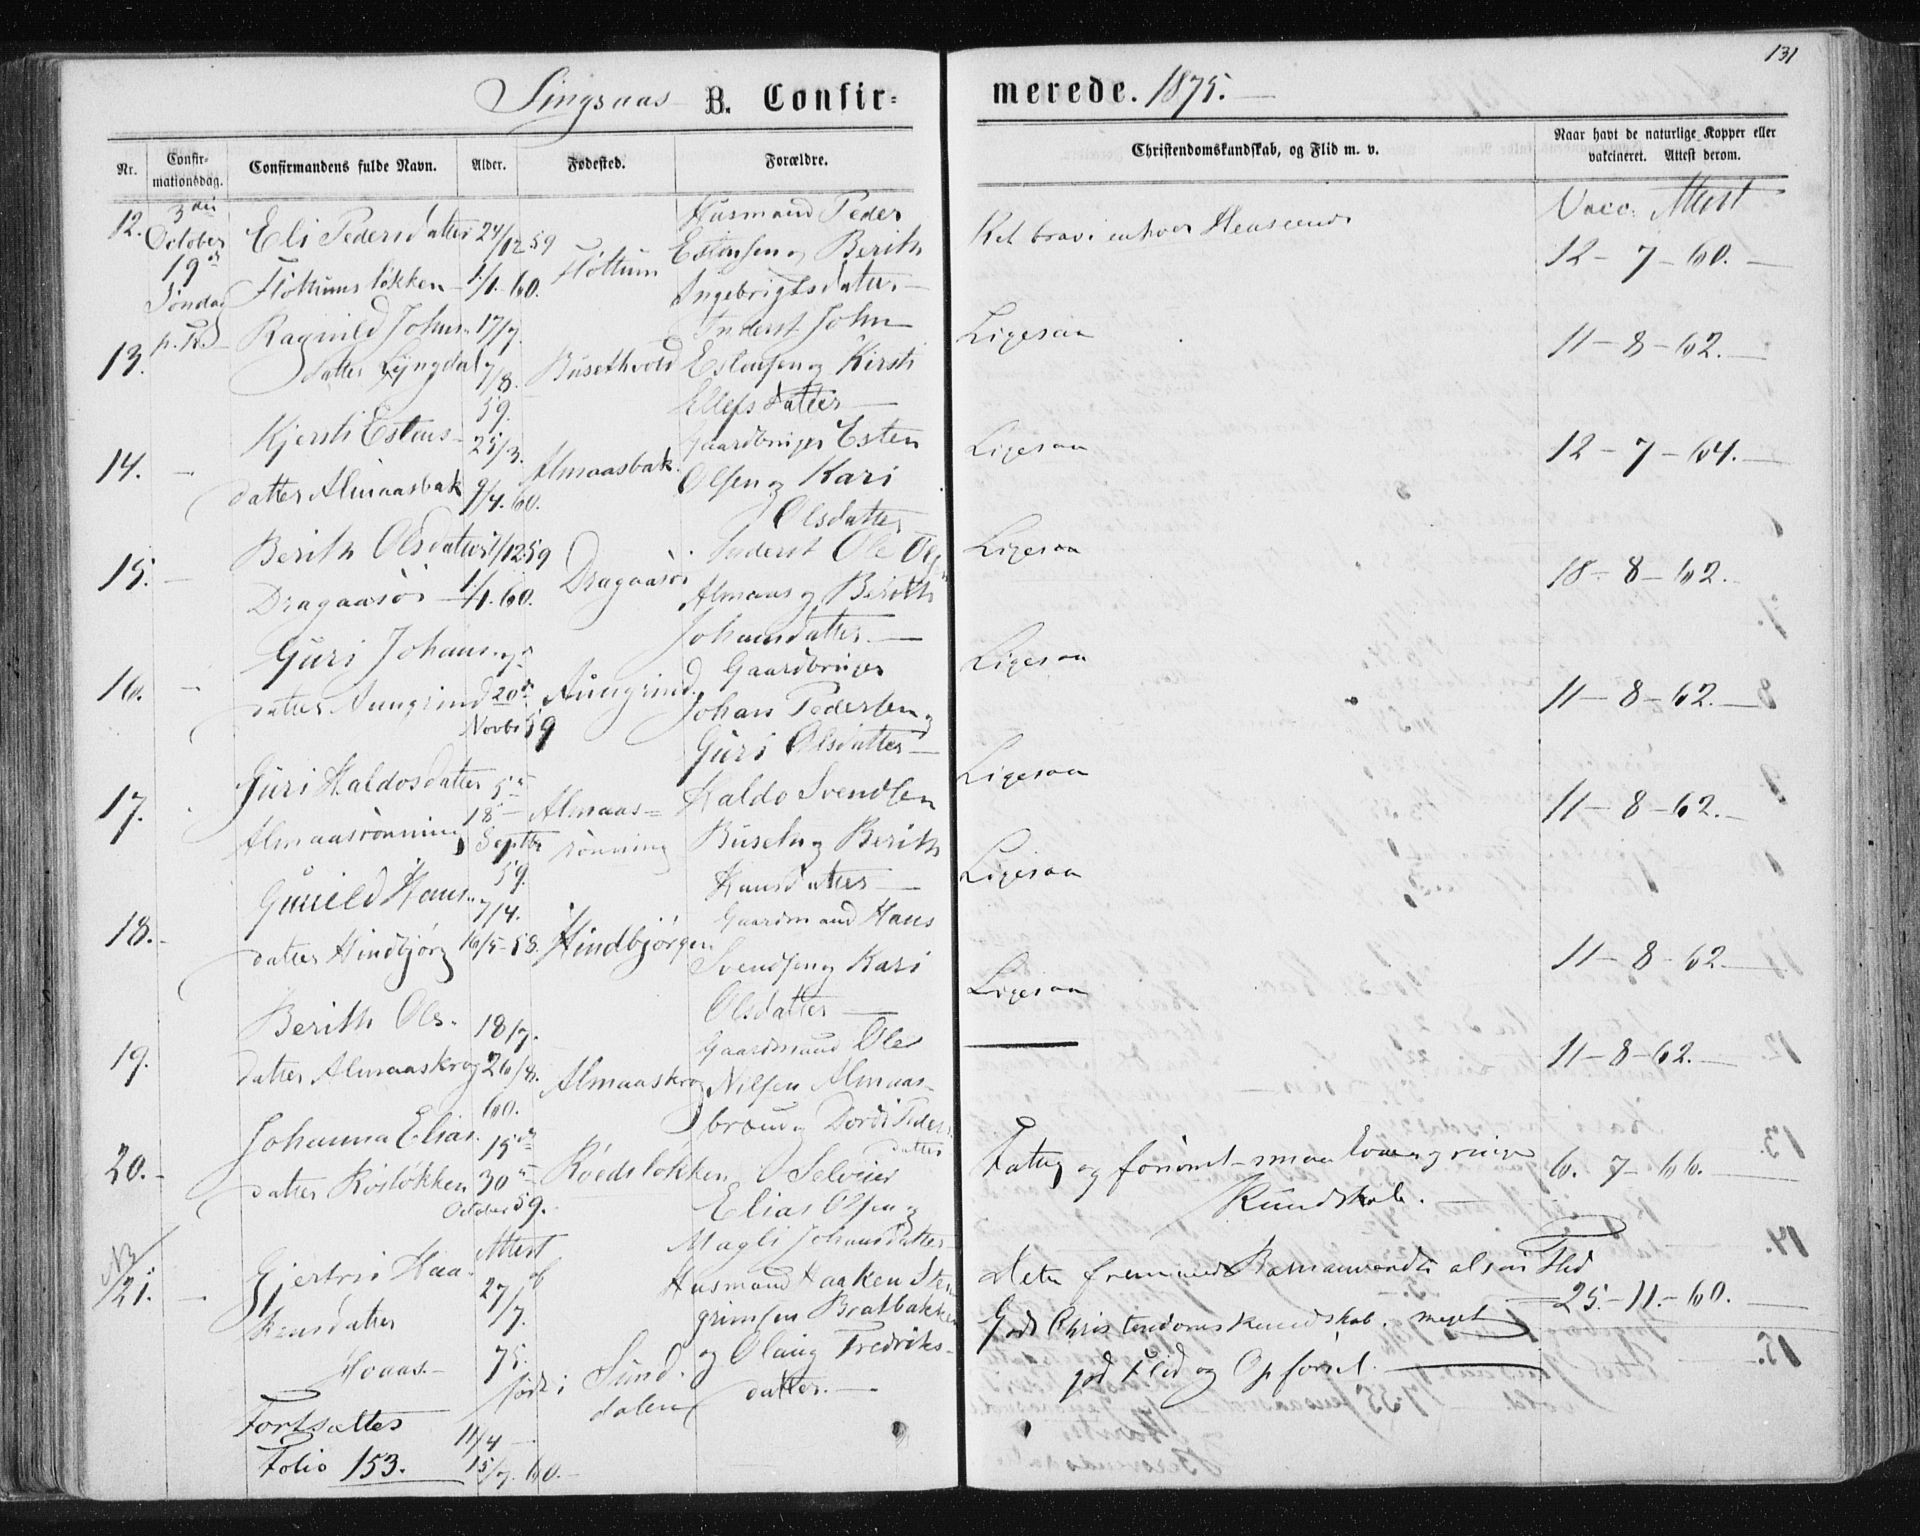 131
Singsaas B. Confir-merede. 1875.
Nr. Confirmationsdag. Confirmandens fulde Navn. Alder. Fødested. Forældre. Christendomskundskab, og Flid m. v. Naar havt de naturlige Kopper eller vakcineret. Attest derom.
12. 3die October 19de Søndag p. Tr.
Eli Pedersdatter
Fløttumsløkken
24/12 59
1/1. 60.
Fløttum
Husmand Peder
Estensen og Berith
Ingebrigtsdatter
Ret brav i enhver Henseende
Vacc. Attest
12-7-60.
13.
Ragnild Johns-
datter Lyngdal
17/7.
7/8.
59.
Busethvold
Inderst John
Estensen og Kirsti
Ellefsdatter
Ligesaa
11-8-62.
14.
Kjersti Estens-
datter Almaasbak
25/3.
9/4. 60.
Almaasbak.
Gaardbruger Esten
Olsen og Kari
Olsdatter
Ligesaa
12-7-64.
15.
Berith Olsdatter
Dragaasøi
/12 59
1/1. 60.
Dragaasøi
Inderst Ole Ols
Almaas og Berith
Johansdatter
Ligesaa
18-8-62.
16.
Guri Johans-
datter Aungrind
20de
Novbr 59
Aungrind.
Gaardbruger
Johan Pedersen og
Guri Olsdatter
Ligesaa
11-8-62.
17.
Guri Haldosdatter
Almaasrønning
5te
18
Septbr
59.
Almaas-
rønning
Haldo Svendsen
Buseth og Berith
Hansdatter
Ligesaa
11-8-62.
18.
Gunild Hans-
datter Hindbjørg
7/4.
16/5-58.
Hindbjørgen
Gaardmand Hans
Svendsen og Kari
Olsdatter
Ligesaa
11-8-62.
19.
Berith Ols-
datter Almaaskrog
18/7.
26/8.
60.
Almaaskrog
Gaardmand Ole
Nilsen Almaas-
broen og Dordi Peders-
datter
Ligesaa
11-8-62.
20.
Johanna Elias-
datter Røsløkken
15de
30te
October 59.
Røedsløkken
Selveier
Elias Olsen og
Magli Johansdatter
Fattig og forsømt - smaa Evner og ringe
Kundskab.
6. 7-66.
N3
21.
Gjertru Haa-
kensdatter
Hoaas.
Attest
af
27/7.
75.
født i
Sund-
dalen
11/4
15/7. 60.
Husmand Haaken Stein
grimsen Bratbakken
og Olaug Fredriks-
datter.
Flid
God Christendomskundskab. meget
god Flid og Opførsel.
25.-11.-60.
Fortsættes
Folio 153.